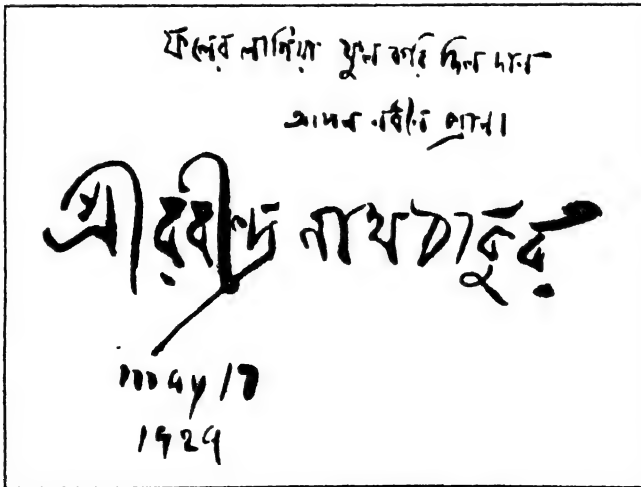 ফলের লাগিয়া ফুল করি দিল দান
আপন নবীন প্রাণ।
শ্রীরবীন্দ্রনাথ ঠাকুর
May
1929